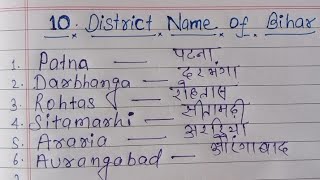 10. District Name of Bihar
1. Patna — पटना
2. Darbhanga — दरभंगा
3. Rohtas — रोहतास
4. Sitamarhi — सीतामढ़ी
5. Araria — अररिया
6. Aurangabad — औरंगाबाद